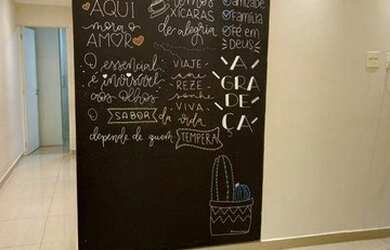 AQUI
mora o
AMOR
XÍCARAS
de alegria
amizade
Família
Fé em
DEUS
O essencial
é invisível
aos olhos
VIAJE
REZE
sonhe
VIVA
A
GRA
DE
ÇA
O SABOR da vida
depende de quem TEMPERA